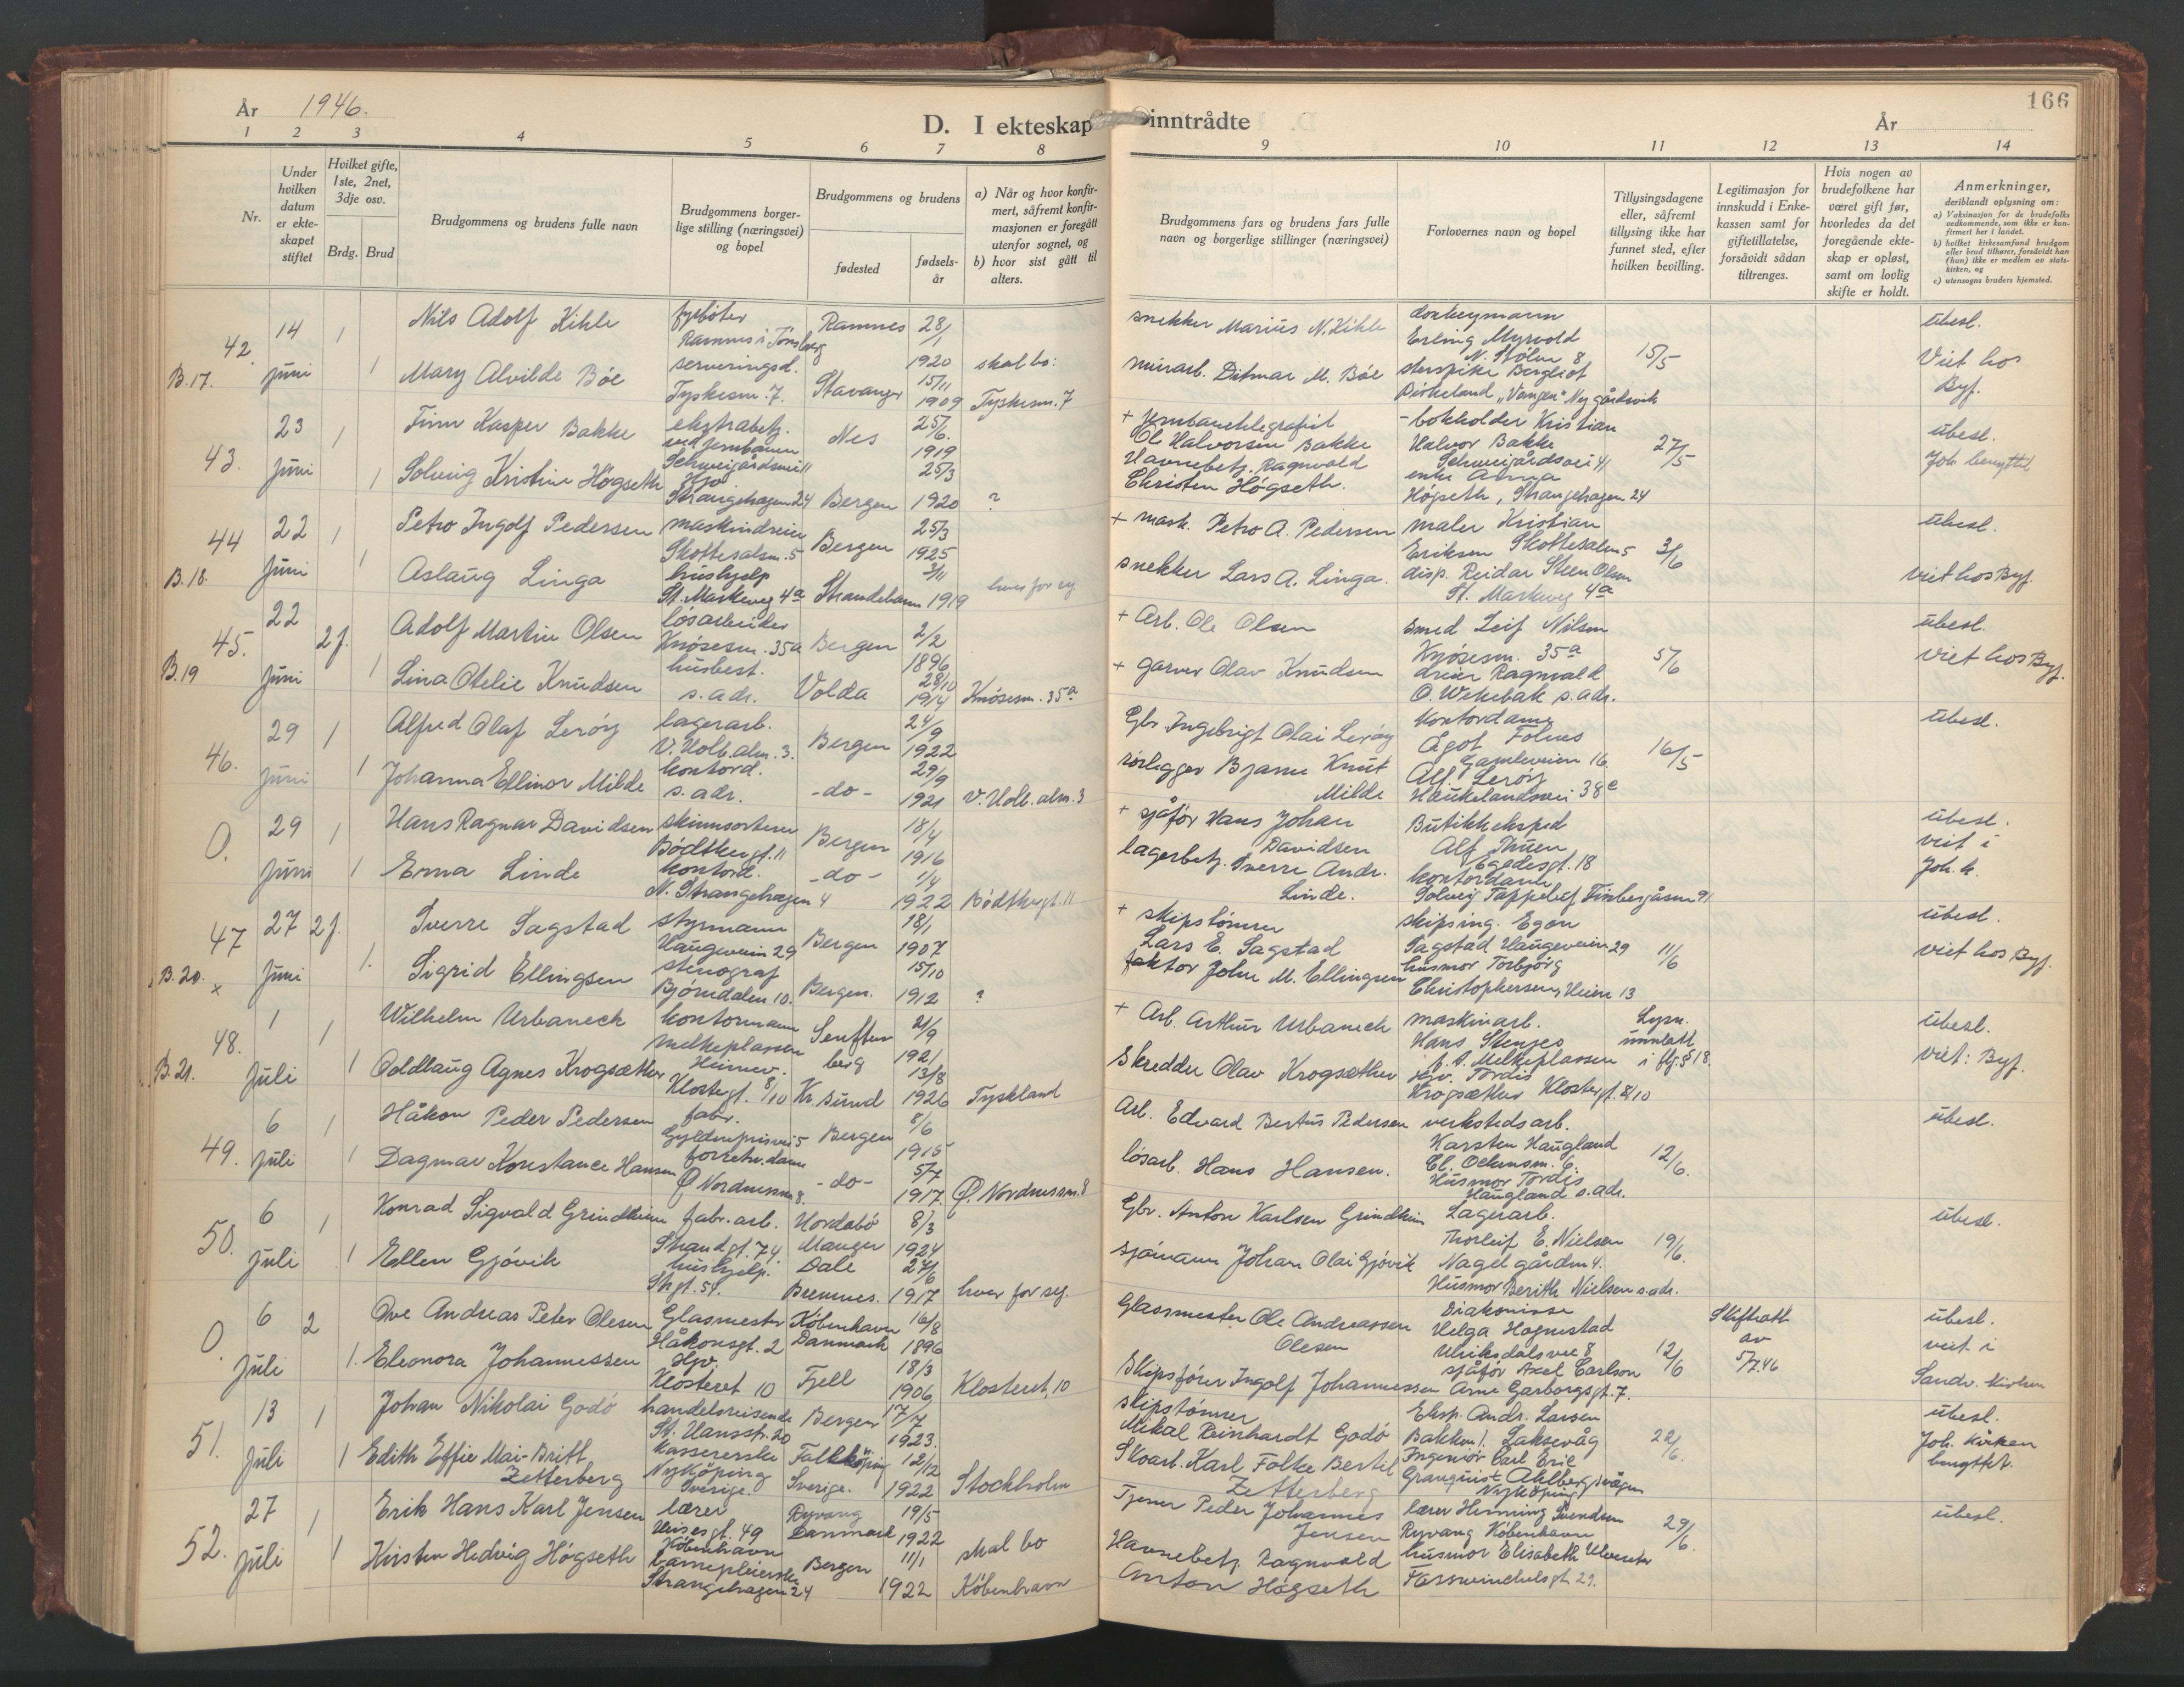 År 1946.
D. I ekteskap inntrådte
År
166
1 2 3 4 5 6 7 8 9 10 11 12 13 14
Nr.
Under hvilken datum er ekteskapet stiftet
Hvilket gifte, 1ste, 2net, 3dje osv.
Brdg. Brud
Brudgommens og brudens fulle navn
Brudgommens borgerlige stilling (næringsvei) og bopel
Brudgommens og brudens
fødested
fødselsår
a) Når og hvor konfirmert, såfremt konfirmasjonen er foregått utenfor sognet, og
b) hvor sist gått til alters.
Brudgommens fars og brudens fars fulle navn og borgerlige stillinger (næringsvei)
Forlovernes navn og bopel
Tillysingsdagene eller, såfremt tillysing ikke har funnet sted, efter hvilken bevilling.
Legitimasjon for innskudd i Enkekassen samt for giftetillatelse, forsåvidt sådan tiltrenges.
Hvis nogen av brudefolkene har været gift før, hvorledes da det foregående ekteskap er opløst, samt om lovlig skifte er holdt.
Anmerkninger, deriblandt oplysning om:
a) Vaksinasjon for de brudefolks vedkommende, som ikke er konfirmert her i landet.
b) hvilket kirkesamfund brudgom eller brud tilhører, forsåvidt han (hun) ikke er medlem av statskirken, og
c) utensogns bruders hjemsted.
42. 14 juni 1 Nils Adolf Kihle fyrbøter Ramnes i Tønsberg Ramnes 28/1 1920 snekker Marius N. Kihle Erling Myrvold N. Stølen 8 15/5 ubesl.
B.17. 1 Mary Alvilde Bøe serveringsd. Tyskesm. 7. Stavanger 15/11 1909 skal bo: Tyskesm. 7 murarb. Ditmar M. Bøe Bergliot Birkeland "Vangen" Nygårdsvik Viet hos Byf.
43. 23 juni 1 Finn Kasper Bakke ekstrabetj. ved jernbanen Schweigårdsvei 11 Nes 25/6. 1919 + Jernbanetelegrafist Ol. Halvorsen Bakke bokholder Kristian Halvor Bakke Schweigårdsvei 41 27/5 ubesl.
1 Solveig Kristine Høgseth Hjv. Strangehagen 24 Bergen 25/3 1920 ? Havnebetj. Ragnvald Christen Høgseth. enke Anna Høgseth, Strangehagen 24 Joh. benyttet
44 22 juni 1 Petro Ingolf Pedersen maskindreier Skottesalm. 5 Bergen 25/3 1925 + mask. Petro A. Pedersen maler Kristian Eriksen Skottesalm 5 3/6 ubesl.
B.18. 1 Aslaug Linga hushjelp St. Markevg 4a Strandebarm 3/11 1919 hver for seg snekker Lars A. Linga. disp. Reidar Steen Olsen St. Markevg 4a viet hos Byf.
45. 22 juni 2 f. Adolf Martin Olsen løsarbeider Knøsesm. 35a Bergen 2/2 1896 + Arb. Ole Olsen Smed Leif Nilsen Knøsesm. 35a 5/6 ubesl.
B.19 1 Lina Otelie Knudsen husbest. s. adr. Volda 28/10 1914 Knøsesm. 35a + garver Olav Knudsen dreier Ragnvald O. Wekebak s. adr. viet hos Byf.
46. 29 juni 1 Alfred Olaf Lerøy lagerarb. V. Holb. alm. 3. Bergen 24/9 1922 Gbr. Ingebrigt Olai Lerøy Kontordame Agot Folnes Gamleveien 16. 16/5 ubesl.
1 Johanna Ellinor Milde kontord. s. adr. -do- 29/9 1921 V. Holb. alm. 3 rørlegger Bjarne Knut Milde Alf. Lerøy Haukelandsvei 38c
O. 29 juni 1 Hans Ragnar Davidsen skinnsorterer Bødtkergt. 11 Bergen 18/4 1916 + sjåfør Hans Johan Davidsen Butikkeksped Alf Thuen Egedesgt. 18 ubesl. viet i Joh. k.
1 Erna Linde kontord. N. Strangehagen 4 -do- 1/4 1922 Bødtkergt. 11 lagerbetj. Sverre Andr. Linde. kontordame Solveig Tappehef Finbergåsmn 91
47 27 juni 2 f. Sverre Sagstad styrmann Haugeveien 29 Bergen 18/1 1907 + skipstømrer Lars E. Sagstad skipsing. Egon Sagstad Haugeveien 29 11/6 ubesl.
B.20. x 1. Sigrid Ellingsen stenograf Bjørndalen 10. Bergen. 15/10 1912 ? faktor John M. Ellingsen husmor Torbjørg Christophersen, Heien 13 viet hos Byf.
48. 1 juli 1 Wilhelm Urbaneck kontormann Melkeplassen Senftenberg 21/9 1921 + Arb. Arthur Urbaneck maskinarb. Hans Stenges p.t. Melkeplassen Lysn. unnlatt i flg. § 18. ubesl.
B.21. 1 Oddlaug Agnes Krogsæther Klostergt. 8/10 Kr. sund 13/8 1926 Tyskland Skredder Olav Krogsæther hjv. Tordis Krogsæther Klostergt. 8/10 viet: Byf.
49. 6 juli 1 Håkon Peder Pedersen fabr. Gyldenprisvei 5 Bergen 8/6 1915 Arb. Edvard Bertus Pedersen verkstedsarb. Karsten Haugland 12/6. ubesl.
1 Dagmar Konstance Hansen forretn. dame Ø. Nordnessm. 8. -do- 5/7 1917. Ø. Nordnessm. 8 løsarb. Hans Hansen. Husmor Tordis Haugland s. adr.
50. 6 juli 1 Konrad Sigvald Grindheim fabr. arb. Strandgt. 74 Hordabø Manger 8/3 1924 Gbr. Anton Karlsen Grindheim Lagerarb. Thorleif E. Nielsen Nagelgården 4. 19/6. ubesl.
1 Ellen Gjøvik hushjelp. Stgt. 54. Dale Bremnes. 27/6 1917 hver for seg. sjømann Johan Olai Gjøvik Husmor Berith Nielsen s. adr.
O. 6 juli 2 Ove Andreas Peter Olesen Glasmester Håkonsgt. 2 København Danmark 16/8 1896 Glassmester Ole Andreassen Olesen Diakonisse Helga Hognestad Ulriksdalsvei 8 12/6 Skifteatt av 5/7.46 ubesl. viet i Sandv. kirken
1. Eleonora Johannessen Hjv. Klosteret 10 Fjell 18/3 1906 Klosteret, 10 Skipsfører Ingolf Johannessen sjåfør Axel Carlson Arne Garborgsgt. 7.
51. 13 juli 1 Johan Nikolai Godø handelsreisende St. Hansstr. 20 Bergen 17/7 1923. skipstømrer Mikal Reinhardt Godø Eksp. Andr. Larsen Bakken 1. Laksevåg 22/6. ubesl. Joh. kirken benyttet.
1 Edith Effie Mai-Britt Zetterberg kassererske Nykøping Sverige. Falkköping Sverige. 12/12 1922 Stockholm Skoarb. Karl Folke Bertil Zetterberg Ingeniør Carl Eric Granquist Ahlbergsvägen Nykøping
52. 27 juli 1 Erik Hans Karl Jensen lærer Heisesgt. 49 København Ryvang Danmark 19/5 1922 Tjener Peder Johannes Jensen lærer Henning Svendsen Ryvang København 29/6. ubesl.
1 Kirsten Hedvig Høgseth barnepleierske Strangehagen 24 Bergen 11/1 1922 skal bo København Havnebetj. Ragnvald Anton Høgseth husmor Elisabeth Ulvester Fosswinckelsgt. 29.